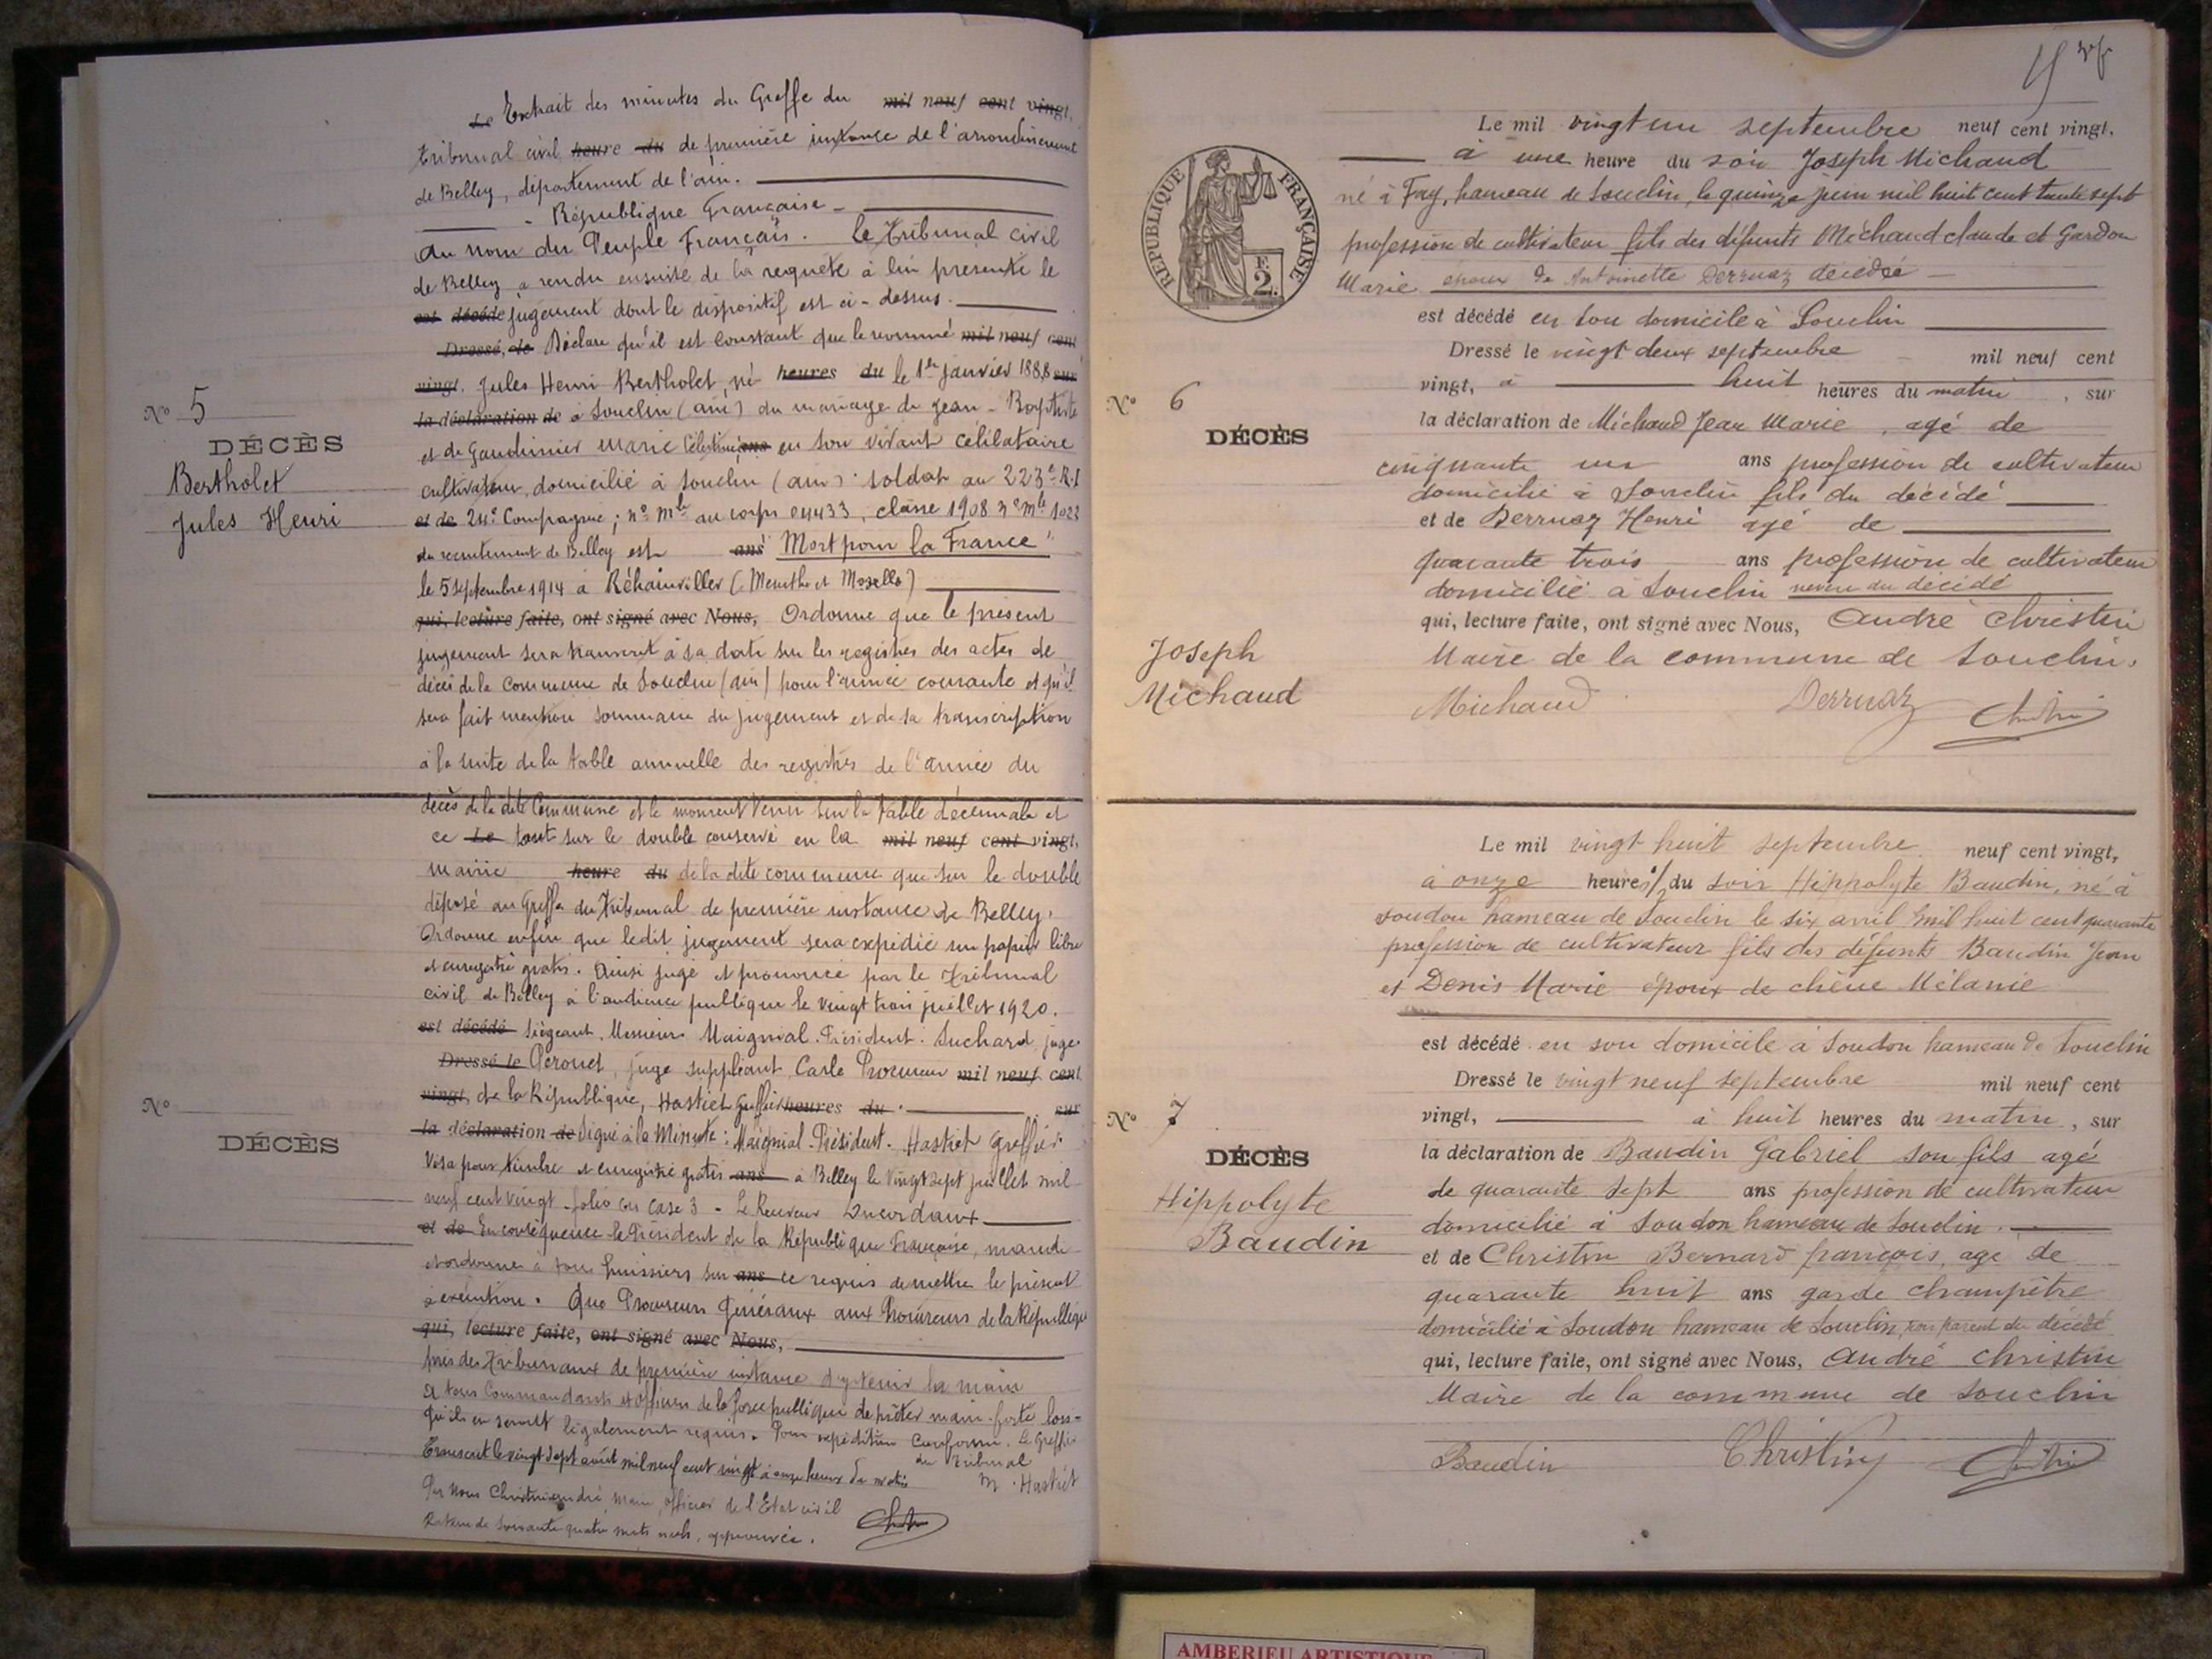 Le Extrait des minutes du Greffe du mil neuf cent vingt,
tribunal civil heure du de première instance de l'arrondissement
de Belley, département de l'ain.
- République Française -
Au nom du Peuple Français. Le Tribunal civil
de Belley a rendu ensuite de la requête à lui présentée le
est décédé jugement dont le dispositif est ci-dessus.
Dressé, le Déclare qu'il est constant que le nommé mil neuf cent
vingt, Jules Henri Bertholet, né heures du le 1er janvier 1888 sur
la déclaration de à Souclin (ain) du mariage de Jean-Baptiste
et de Gaudinier Marie Célestine, ans en son vivant célibataire
cultivateur, domicilié à Souclin (ain) soldat au 223e R.I
et de 24e Compagnie; no mle au corps 04433, classe 1908 no mle 1022
du recrutement de Belley est ans "Mort pour la France"
le 5 septembre 1914 à Réhainviller (Meurthe et Moselle)
qui, lecture faite, ont signé avec Nous, Ordonne que le présent
jugement sera transcrit à sa date sur les registres des actes de
décès de la Commune de Souclin (ain) pour l'année courante et qu'il
sera fait mention sommaire du jugement et de sa transcription
à la suite de la table annuelle des registres de l'année du
N° 5
DÉCÈS
Bertholet
Jules Henri
décès de la dite Commune et le moment venu sur la table décennale et
ce Le tout sur le double conservé en la mil neuf cent vingt,
mairie heure du de la dite commune que sur le double
déposé au Greffe du Tribunal de première instance de Belley,
Ordonne enfin que ledit jugement sera expédié sur papier libre
et enregistré gratis. Ainsi jugé et prononcé par le Tribunal
civil de Belley à l'audience publique le vingt trois juillet 1920.
est décédé Siégeant, Messieurs Maignial. Président. Suchard, juge
Dressé le Perouet, juge suppléant, Carle Procureur mil neuf cent
vingt, de la République, Hastiet Greffier heures du sur
la déclaration de Signé à la Minute: Maignial. Président. Hastiet Greffier
Visa pour timbre et enregistré gratis ans à Belley le Vingt sept juillet mil
neuf cent vingt. folio case 3 - Le Receveur
et de En conséquence le Président de la République Française, mande
et ordonne à tous huissiers sur ans ce requis de mettre le présent
à exécution. Aux Procureurs Généraux aux Procureurs de la République
qui, lecture faite, ont signé avec Nous,
près des Tribunaux de première instance d'y tenir la main
A tous Commandants et Officiers de la force publique de prêter main-forte lors-
qu'ils en seront légalement requis. Pour expédition Conforme. Le Greffier
du Tribunal
Transcrit le vingt sept août mil neuf cent vingt à onze heures du matin
M. Hastiet
Par Nous Christin andré, Maire, officier de l'Etat civil
Rature de soixante quatre mots nuls, approuvée.
N°
DÉCÈS
RÉPUBLIQUE FRANÇAISE
2
Le mil vingt un septembre neuf cent vingt,
à une heure du soir Joseph Michaud
né à Fay, hameau de Souclin, le quinze juin mil huit cent trente sept
profession de cultivateur fils des défunts Michaud claude et Gardon
Marie époux de Antoinette Derruaz décédée
est décédé en son domicile à Souclin
Dressé le vingt deux septembre mil neuf cent
vingt, à huit heures du matin, sur
la déclaration de Michaud Jean Marie, agé de
cinquante un ans profession de cultivateur
domicilié à Souclin fils du décédé
et de Derruaz Henri agé de
quarante trois ans profession de cultivateur
domicilié à Souclin neveu du décédé
qui, lecture faite, ont signé avec Nous, André Christin
Maire de la commune de Souclin.
Michaud Derruaz Christin
N° 6
DÉCÈS
Joseph
Michaud
Le mil vingt huit septembre neuf cent vingt,
à onze heures 1/2 du soir Hippolyte Baudin, né à
soudon hameau de Souclin le six avril mil huit cent quarante
profession de cultivateur fils des défunts Baudin Jean
et Denis Marie époux de chêne Mélanie
est décédé en son domicile à Soudon hameau de Souclin
Dressé le vingt neuf septembre mil neuf cent
vingt, à huit heures du matin, sur
la déclaration de Baudin Gabriel son fils agé
de quarante sept ans profession de cultivateur
domicilié à Soudon hameau de Souclin.
et de Christin Bernard françois, age de
quarante huit ans garde champêtre
domicilié à Soudon hameau de Souclin, non parent du décédé
qui, lecture faite, ont signé avec Nous, André Christin
Maire de la commune de Souclin
Baudin Christin Christin
N° 7
DÉCÈS
Hippolyte
Baudin
AMBERIEU ARTISTIQUE